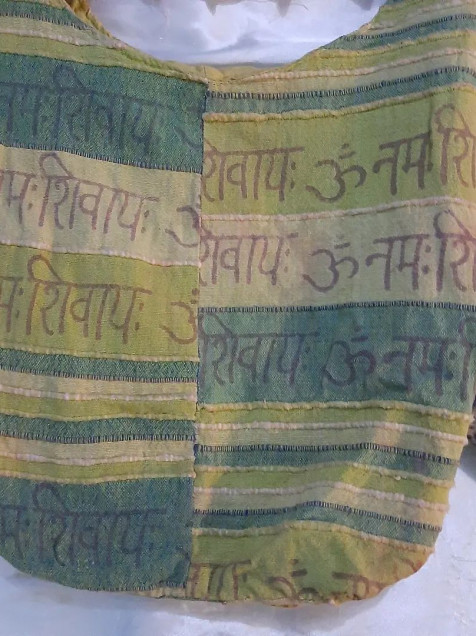 नमःशिवायः ॐ
शिवायः ॐ नमःशि
मःशिवायः ॐ
शिवायः ॐ नमःशि
मःशिवायः ॐ
शिवायः ॐ नमः
मःशिवायः
वाय ॐ नमः